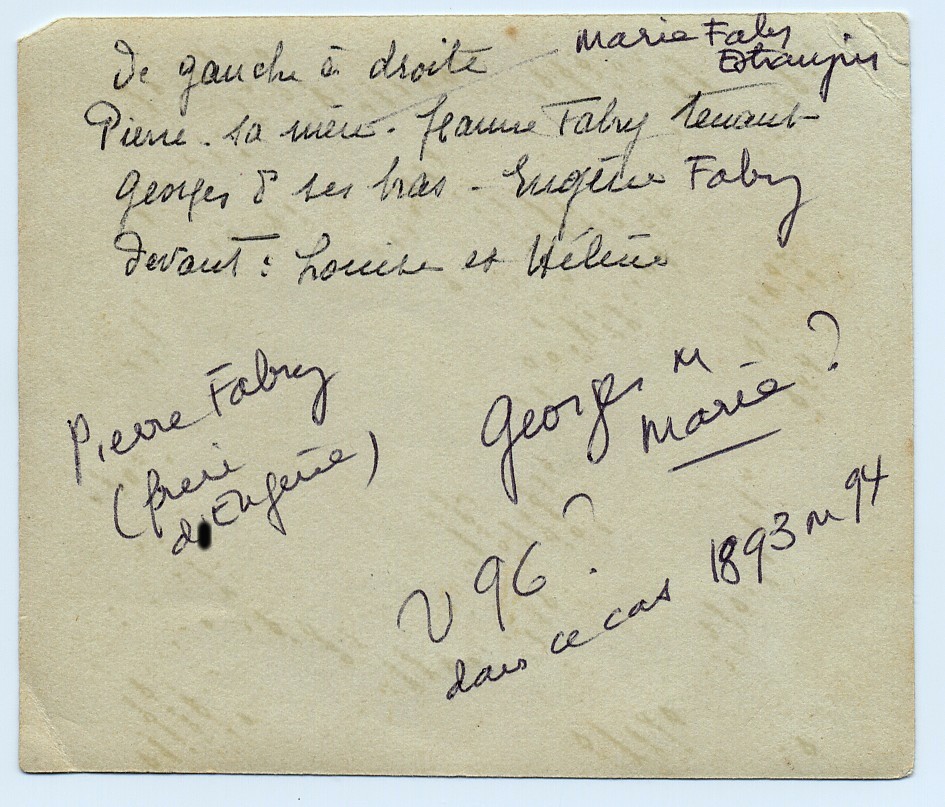 Marie Fabry
De gauche à droite
Pierre - sa mère - Jeanne Fabry tenant
Georges ds ses bras - Eugène Fabry
devant : Louise et Hélène
Pierre Fabry
(frère
d'Eugène)
Georges ou
Marie ?
V 96 ?
dans ce cas 1893 ou 94